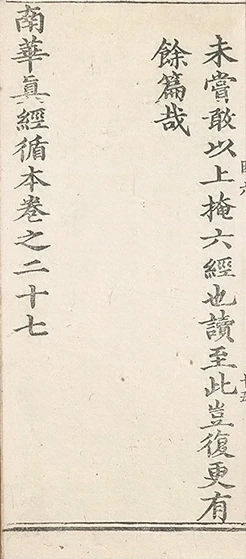 未嘗敢以上掩六經也讀至此豈復更有
餘篇哉
南華眞經循本卷之二十七